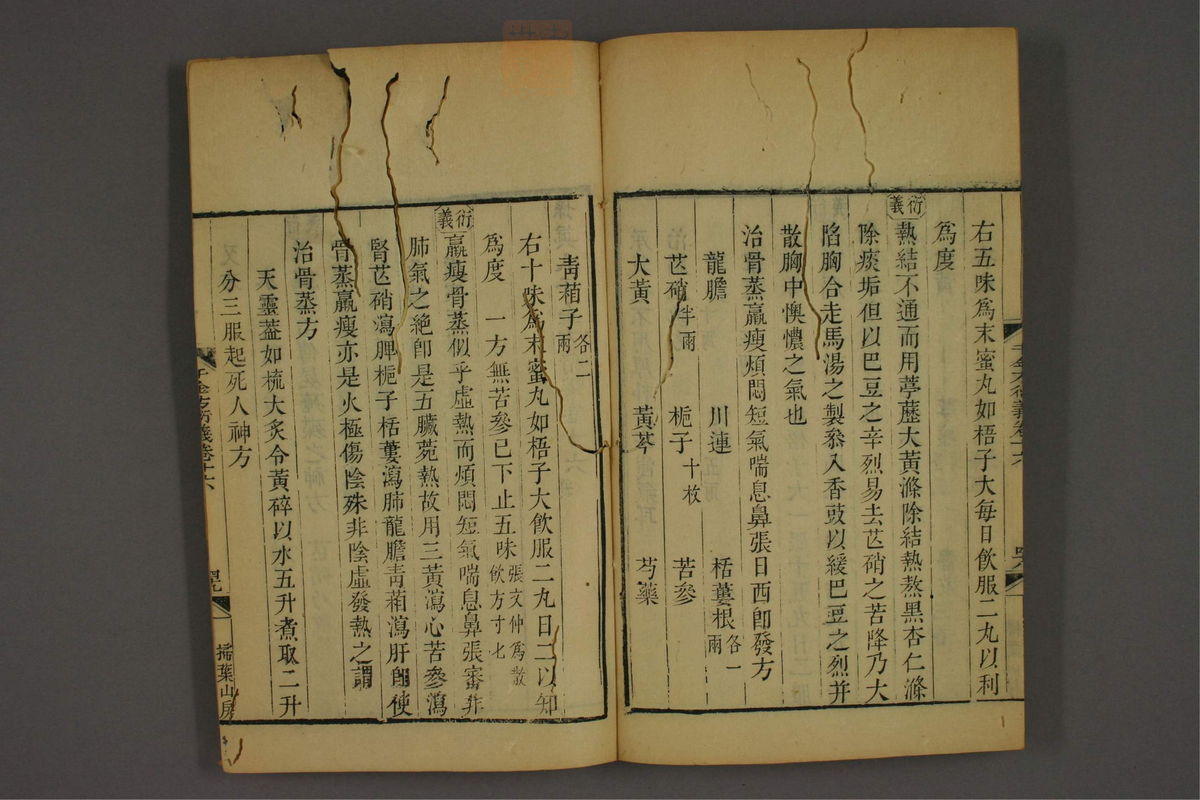 右五味爲末蜜丸如梧子大每日飲服二丸以利
爲度
衍義
熱結不通而用葶藶大黃滌除結熱熬黑杏仁滌
除痰垢但以巴豆之辛烈易去芒硝之苦降乃大
陷胸合走馬湯之製叅入香豉以緩巴豆之烈并
散胸中懊憹之氣也
治骨蒸羸瘦煩悶短氣喘息鼻張日西卽發方
龍膽 川連 栝蔞根各一兩
芒硝半兩 梔子十枚 苦參
大黃 黃芩 芍藥
青葙子各二兩
右十味爲末蜜丸如梧子大飲服二丸日二以知
爲度 一方無苦參巳下止五味張文仲爲散飲方寸匕
衍義
羸瘦骨蒸似乎虛熱而煩悶短氣喘息鼻張審非
肺氣之絶卽是五臟菀熱故用三黃瀉心苦參瀉
腎芒硝瀉脾梔子栝蔞瀉肺龍膽青葙瀉肝卽使
骨蒸羸瘦亦是火極傷陰殊非陰虛發熱之謂
治骨蒸方
天靈蓋如梳大炙令黃碎以水五升煮取二升
分三服起死人神方
千金方衍義卷十六
掃葉山房